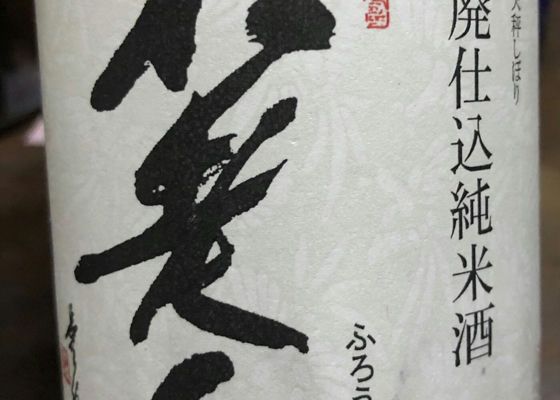 天秤しぼり
廃仕込純米酒
ふろう
老